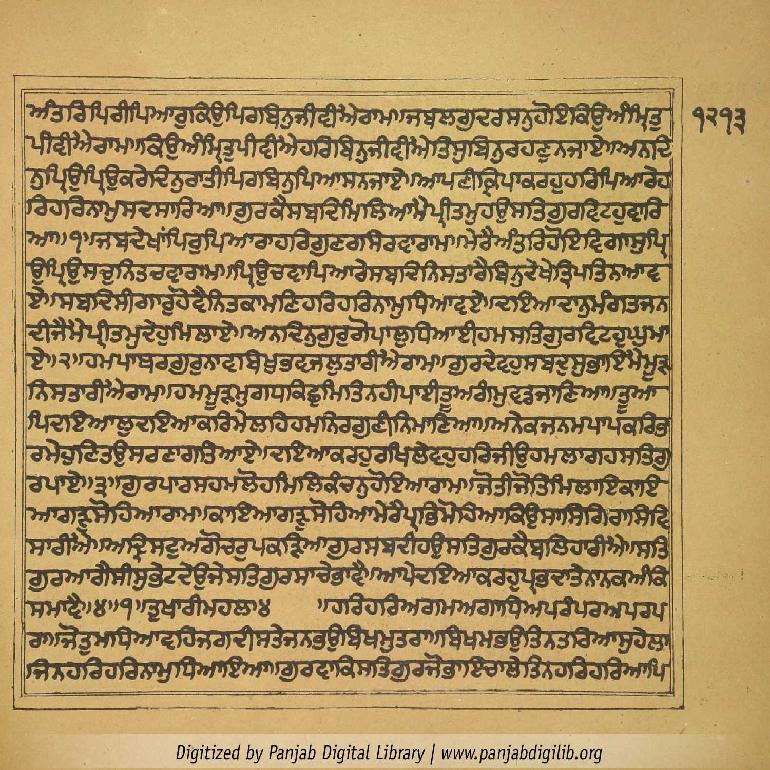 ਅੰਤਰਿਪਿਰੀਪਿਆਰੁਕਿਉਪਿਰਬਿਨੁਜੀਵੀਐਰਾਮ॥ਜਬਲਗੁਦਰਸਨੁਹੋਇਕਿਉਅੰਮ੍ਰਿਤੁ
ਪੀਵੀਐਰਾਮ॥ਕਿਉਅੰਮ੍ਰਿਤੁਪੀਵੀਐਹਰਿਬਿਨੁਜੀਵੀਐਤਿਸੁਬਿਨੁਰਹਣੁਨਜਾਏ॥ਅਨਦਿ
ਨੁਪ੍ਰਿਉਪ੍ਰਿਉਕਰੇਦਿਨੁਰਾਤੀਪਿਰਬਿਨੁਪਿਆਸਨਜਾਏ॥ਆਪਣੀਕ੍ਰਿਪਾਕਰਹੁਹਰਿਪਿਆਰੇਹ
ਰਿਹਰਿਨਾਮੁਸਦਸਾਰਿਆ॥ਗੁਰਕੈਸਬਦਿਮਿਲਿਆਮੈਪ੍ਰੀਤਮੁਹਉਸਤਿਗੁਰਵਿਟਹੁਵਾਰਿ
ਆ॥੧॥ਜਬਦੇਖਾਂਪਿਰੁਪਿਆਰਾਹਰਿਗੁਣਰਸਿਰਵਾਰਾਮ॥ਮੇਰੈਅੰਤਰਿਹੋਇਵਿਗਾਸੁਪ੍ਰਿ
ਉਪ੍ਰਿਉਸਚੁਨਿਤਚਵਾਰਾਮ॥ਪ੍ਰਿਉਚਵਾਪਿਆਰੇਸਬਦਿਨਿਸਤਾਰੇਬਿਨੁਦੇਖੇਤ੍ਰਿਪਤਿਨਆਵ
ਏ॥ਸਬਦਿਸੀਗਾਰੁਹੋਵੈਨਿਤਕਾਮਣਿਹਰਿਹਰਿਨਾਮੁਧਿਆਵਏ॥ਦਇਆਦਾਨੁਮੰਗਤਜਨ
ਦੀਜੈਮੈਪ੍ਰੀਤਮੁਦੇਹੁਮਿਲਾਏ॥ਅਨਦਿਨੁਗੁਰੁਗੋਪਾਲੁਧਿਆਈਹਮਸਤਿਗੁਰਵਿਟਹੁਘੁਮਾ
ਏ॥੨॥ਹਮਪਾਥਰਗੁਰੁਨਾਵਬਿਖੁਭਵਜਲੁਤਾਰੀਐਰਾਮ॥ਗੁਰਦੇਵਹੁਸਬਦੁਸੁਭਾਇਮੈਮੂੜ
ਨਿਸਤਾਰੀਐਰਾਮ॥ਹਮਮੂੜਮੁਗਧਕਿਛੁਮਿਤਿਨਹੀਪਾਈਤੂਅਗੰਮੁਵਡਜਾਣਿਆ॥ਤੂਆ
ਪਿਦਇਆਲੁਦਇਆਕਰਿਮੇਲਹਿਹਮਨਿਰਗੁਣੀਨਿਮਾਣਿਆ॥ਅਨੇਕਜਨਮਪਾਪਕਰਿਭ
ਰਮੇਹੁਣਿਤਉਸਰਣਾਗਤਿਆਏ॥ਦਇਆਕਰਹੁਰਖਿਲੇਵਹੁਹਰਿਜੀਉਹਮਲਾਗਹਸਤਿਗੁ
ਰਪਾਏ॥੩॥ਗੁਰਪਾਰਸਹਮਲੋਹਮਿਲਿਕੰਚਨੁਹੋਇਆਰਾਮ॥ਜੋਤੀਜੋਤਿਮਿਲਾਇਕਾਇ
ਆਗੜੁਸੋਹਿਆਰਾਮ॥ਕਾਇਆਗੜੁਸੋਹਿਆਮੇਰੈਪ੍ਰਭਿਮੋਹਿਆਕਿਉਸਾਸਿਗਿਰਾਸਿਵਿ
ਸਾਰੀਐ॥ਅਦ੍ਰਿਸਟੁਅਗੋਚਰੁਪਕੜਿਆਗੁਰਸਬਦੀਹਉਸਤਿਗੁਰਕੈਬਲਿਹਾਰੀਐ॥ਸਤਿ
ਗੁਰਆਗੈਸੀਸੁਭੇਟਦੇਉਜੇਸਤਿਗੁਰਸਾਚੇਭਾਵੈ॥ਆਪੇਦਇਆਕਰਹੁਪ੍ਰਭਦਾਤੇਨਾਨਕਅੰਕਿ
ਸਮਾਵੈ॥੪॥੧॥ਤੁਖਾਰੀਮਹਲਾ੪ ॥ਹਰਿਹਰਿਅਗਮਅਗਾਧਿਅਪਰੰਪਰਅਪਰਪ
ਰਾ॥ਜੋਤੁਮਧਿਆਵਹਿਜਗਦੀਸਤੇਜਨਭਉਬਿਖਮੁਤਰਾ॥ਬਿਖਮਭਉਤਿਨਤਰਿਆਸੁਹੇਲਾ
ਜਿਨਹਰਿਹਰਿਨਾਮੁਧਿਆਇਆ॥ਗੁਰਵਾਕਿਸਤਿਗੁਰਜੋਭਾਇਚਲੇਤਿਨਹਰਿਹਰਿਆਪਿ
੧੨੧੩
Digitized by Panjab Digital Library | www.panjabdigilib.org